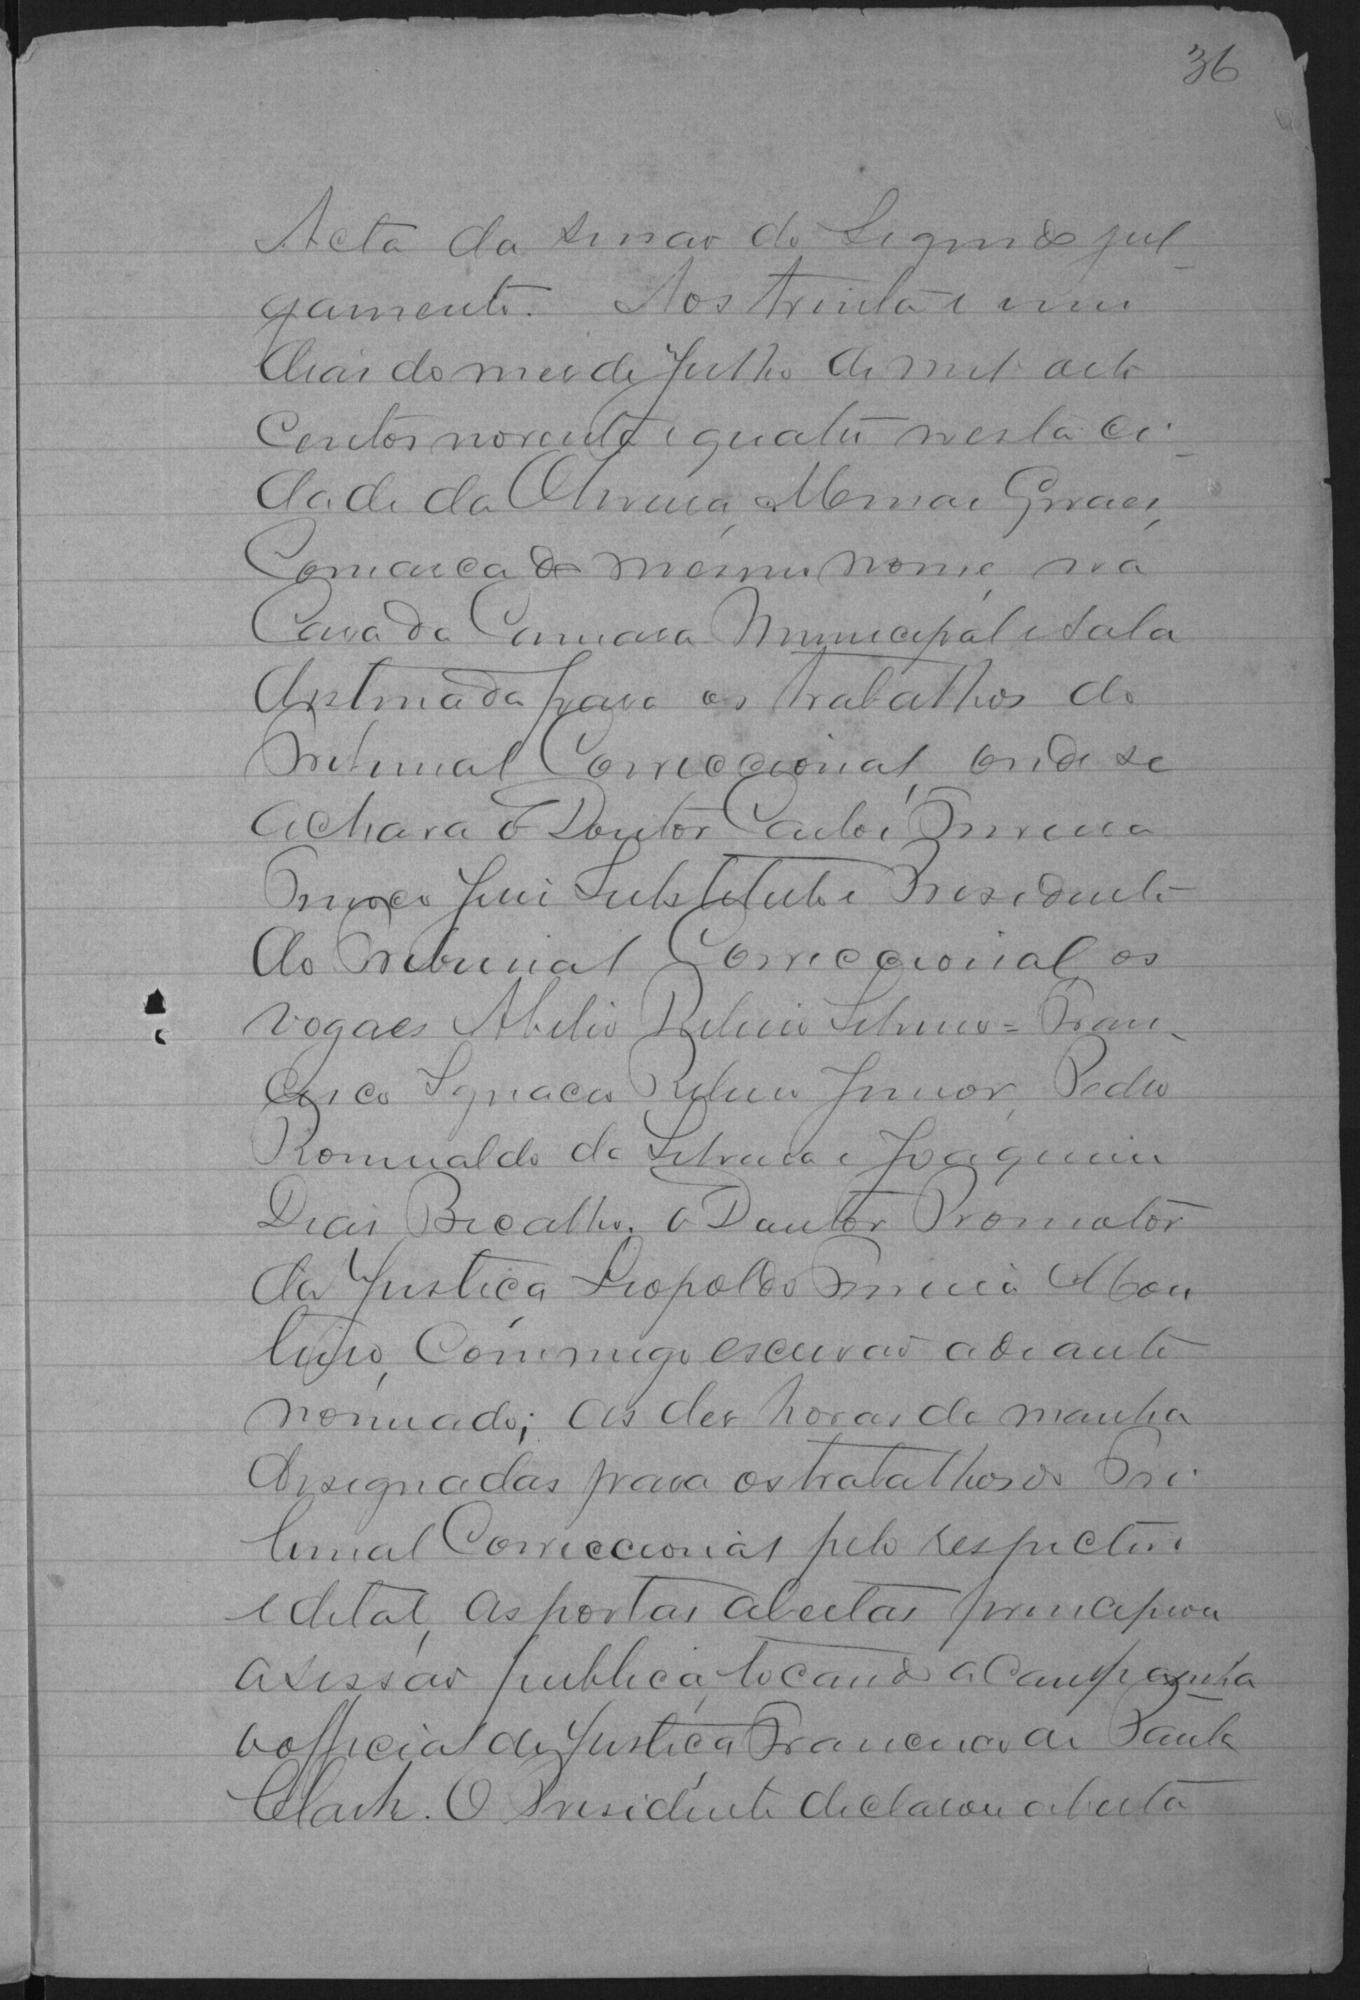 36
Acta da sessão do Segundo jul-
gamento. Aos trinta e um
dias do mes de Julho de mil oito
centos noventa e quatro nesta ci-
dade da Oliveira, Minas Geraes,
Comarca do mesmo nome, na
Casa da Camara Municipal e sala
destinada para os trabalhos do
Tribunal Correccional, onde se
achava o Doutor Carlos Ferreira
Juiz Substituto e Presidente
do Tribunal Correccional, os
vogaes Abilio Ribeiro Silveira = Fran-
cisco Ignacio Ribeiro Junior, Pedro
Romualdo da Silveira e Joaquim
Dias Bicalho, o Doutor Promotor
da Justiça Leopoldo Ferreira Mon
teiro, Commigo escrivão adiante
nomeado; as dez horas da manha
designadas para os trabalhos do Tri-
bunal Correccional pelo respectivo
edital, as portas abertas principiou
a sessão publica, tocando a campainha
o official de Justiça Francisco de Paula
Clark. O Presidente declarou aberta